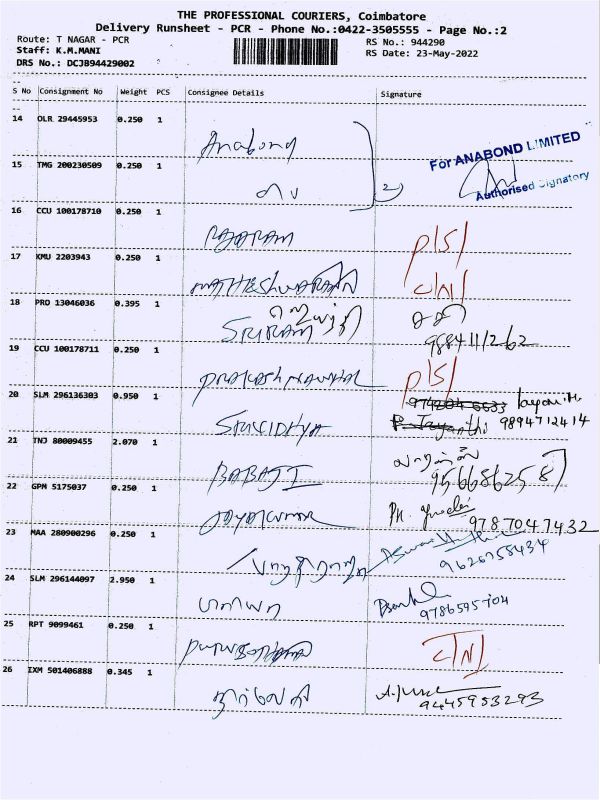 THE PROFESSIONAL COURIERS, Coimbatore
Delivery Runsheet - PCR - Phone No.:0422-3505555 - Page No.:2
Route: T NAGAR - PCR
RS No.: 944290
Staff: K.M.MANI
RS Date: 23-May-2022
DRS No.: DCJB94429002
S No Consignment No Weight PCS Consignee Details Signature
14 OLR 29445953 0.250 1
Anabond
For ANABOND LIMITED
15 TMG 200230509 0.250 1
2
Authorised Signatory
16 CCU 100178710 0.250 1
RAJARAM P/S/
17 KMU 2203943 0.250 1
C/N/
18 PRO 13046036 0.395 1
SRIRAM
9884111262
19 CCU 100178711 0.250 1
P/S/
20 SLM 296136303 0.950 1
SRIVIDHYA
9894712414
21 TNJ 80009455 2.070 1
BABAJI
22 GPM 5175037 0.250 1
JAYAKUMAR
9787047432
23 MAA 280900296 0.250 1
9626758434
24 SLM 296144097 2.950 1
9786595704
25 RPT 9099461 0.250 1
C/N/
26 IXM 501406888 0.345 1
9445953293